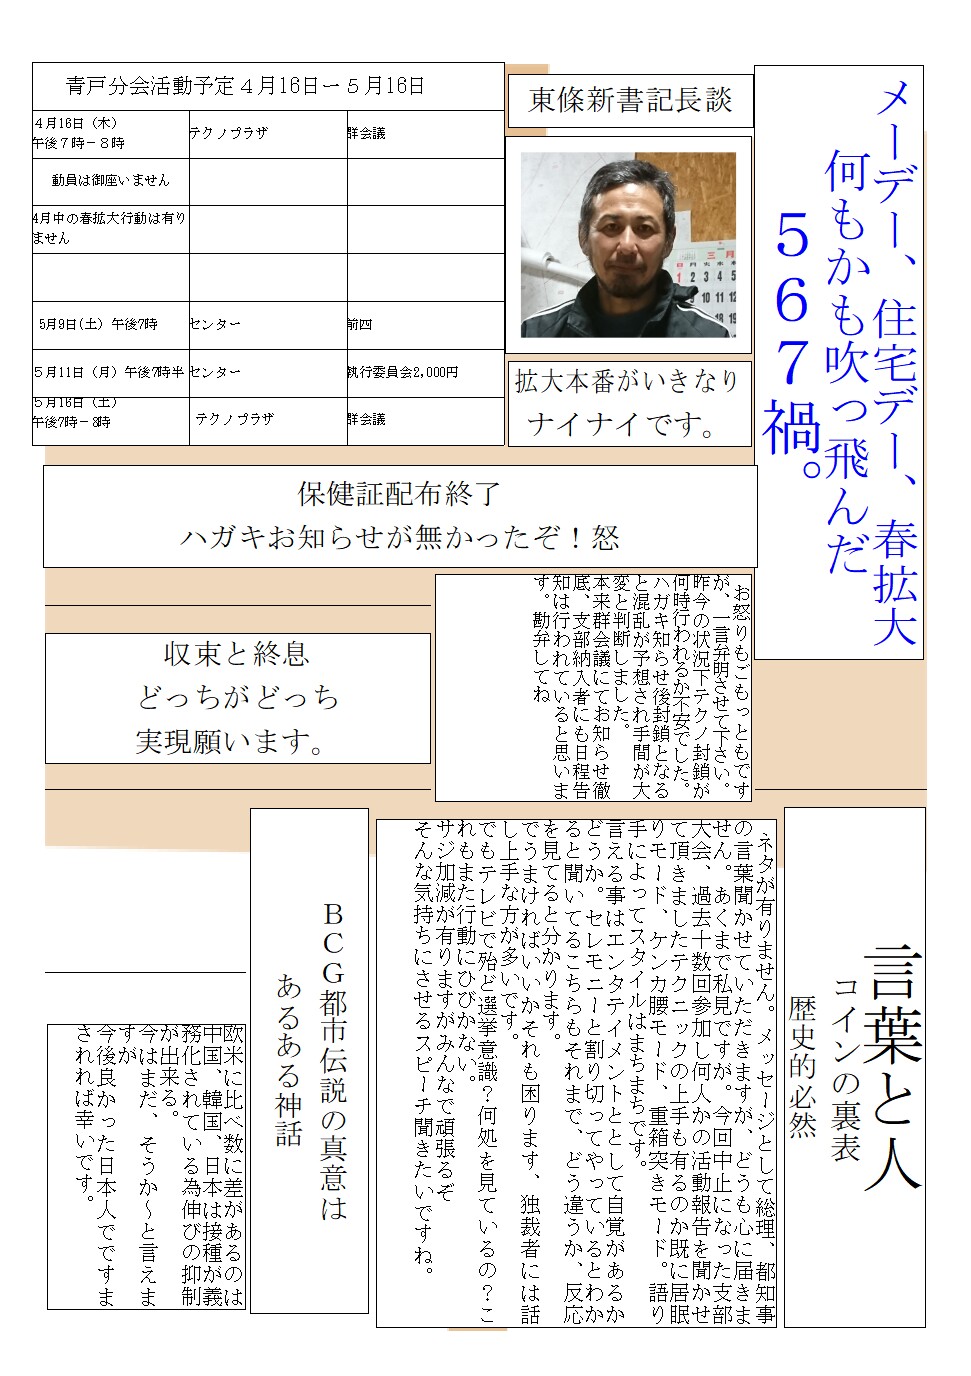 メーデー、住宅デー、春拡大
何もかも吹っ飛んだ
５６７禍。
東條新書記長談
三月
日 月 火 水 木
1 2 3 4 5
10 11 12
拡大本番がいきなり
ナイナイです。
青戸分会活動予定４月16日ー５月16日
４月16日（木）
午後７時－８時
テクノプラザ
群会議
動員は御座いません
4月中の春拡大行動は有り
ません
5月9日(土) 午後7時
センター
前四
５月11日（月）午後7時半
センター
執行委員会2,000円
５月16日（土）
午後7時－8時
テクノプラザ
群会議
保健証配布終了
ハガキお知らせが無かったぞ！怒
お怒りもごもっともです
が、一言弁明させて下さい。
昨今の状況下テクノ封鎖が
何時行われるか不安でした。
ハガキ知らせ後封鎖となる
と混乱が予想され手間が大
変と判断しました。
本来群会議にてお知らせ徹
底、支部納入者にも日程告
知は行われていると思いま
す。勘弁してね
収束と終息
どっちがどっち
実現願います。
言葉と人
コインの裏表
歴史的必然
ネタが有りません。メッセージとして総理、都知事
の言葉聞かせていただきますが、どうも心に届きま
せん。あくまで私見ですが。今回中止になった支部
大会、過去十数回参加し何人かの活動報告を聞かせ
て頂きましたテクニックの上手も有るのか既に居眠
りモード、ケンカ腰モード、重箱突きモード。語り
手によってスタイルはまちまちです。
言える事はエンタテイメントととして自覚があるか
どうか。セレモニーと割り切ってやっているとわか
ると聞いてるこちらもそれまで、どう違うか、反応
を見てると分かります。
でうまければいいかそれも困ります、独裁者には話
し上手な方が多いです。
でもテレビで殆ど選挙意識？何処を見ているの？こ
れもまた行動にひびかない。
サジ加減が有りますがみんなで頑張るぞ
そんな気持ちにさせるスピーチ聞きたいですね。
ＢＣＧ都市伝説の真意は
あるある神話
欧米に比べ数に差があるのは
中国、韓国、日本は接種が義
務化されている為伸びの抑制
が出来る。
今はまだ、そうか～と言えま
すが
今後良かった日本人でですま
されれば幸いです。